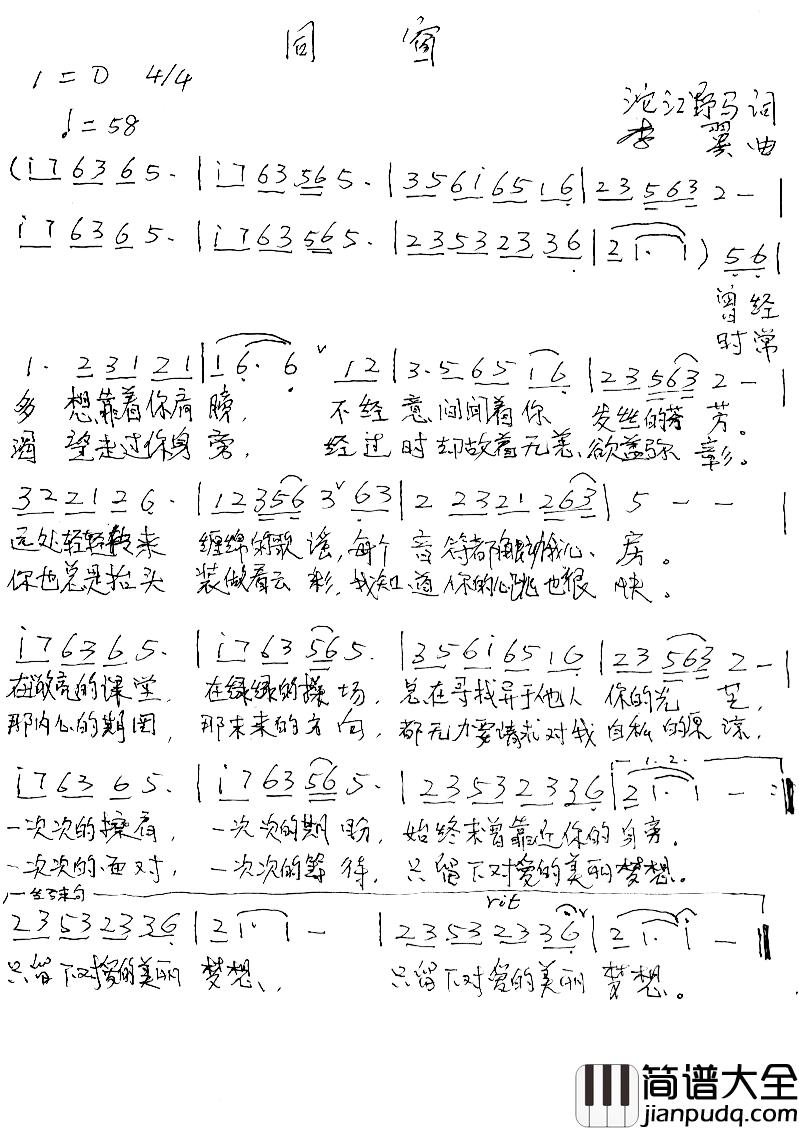 同 窗
1=D 4/4
♩=58
沱江野马词
李 翼 曲
(i 7 6 3 6 5· | i 7 6 3 5 6 5· | 3 5 6 i 6 5 1 6 | 2 3 5 6 3 2 - |
i 7 6 3 6 5· | i 7 6 3 5 6 5· | 2 3 5 3 2 3 3 6 | 2 1· 1 ) 5 6 |
曾经
时常
1· 2 3 1 2 1 | 1 6· 6 ∨ 1 2 | 3· 5 6 5 1 6 | 2 3 5 6 3 2 - |
多 想靠着你肩 膀， 不经 意间闻着你 发丝的芬 芳。
渴 望走过你身 旁， 经过 时却故着无恙、欲盖弥 彰。
3 2 2 1 2 6· | 1 2 3 5 6 3 ∨ 6 3 | 2 2 3 2 1 2 6 3 | 5 - - |
远处轻轻 来 缠绵的歌 谣，每个 音 符都触动我心 房。
你也总是抬头 装做看云 彩，我知 道 你的心跳也很 快。
i 7 6 3 6 5· | i 7 6 3 5 6 5· | 3 5 6 i 6 5 1 6 | 2 3 5 6 3 2 - |
在敞亮的课堂， 在绿绿的操 场， 总在寻找异于他人 你的光 芒，
那内心的期 ， 那未来的方 向， 都无力要请求对我 自私的原 谅，
i 7 6 3 6 5· | i 7 6 3 5 6 5· | 2 3 5 3 2 3 3 6 | 2 1· 1 - :‖
1. 2.
一次次的擦肩， 一次次的期 盼， 始终未曾靠近你的 身旁。
一次次的面对， 一次次的等 待， 只留下对爱的美丽 梦想。
结束句
rit
2 3 5 3 2 3 3 6 | 2 1· 1 - | 2 3 5 3 2 3 3 6 ∨ | 2 1· 1 - ‖
只留下对爱的美丽 梦想、 只留下对爱的美丽 梦想。
简谱大全
jianpudq.com